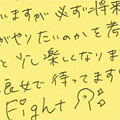 いますが必ず将来
がやりたいのかを考
と少し楽しくなりま
良女で待ってます
Fight